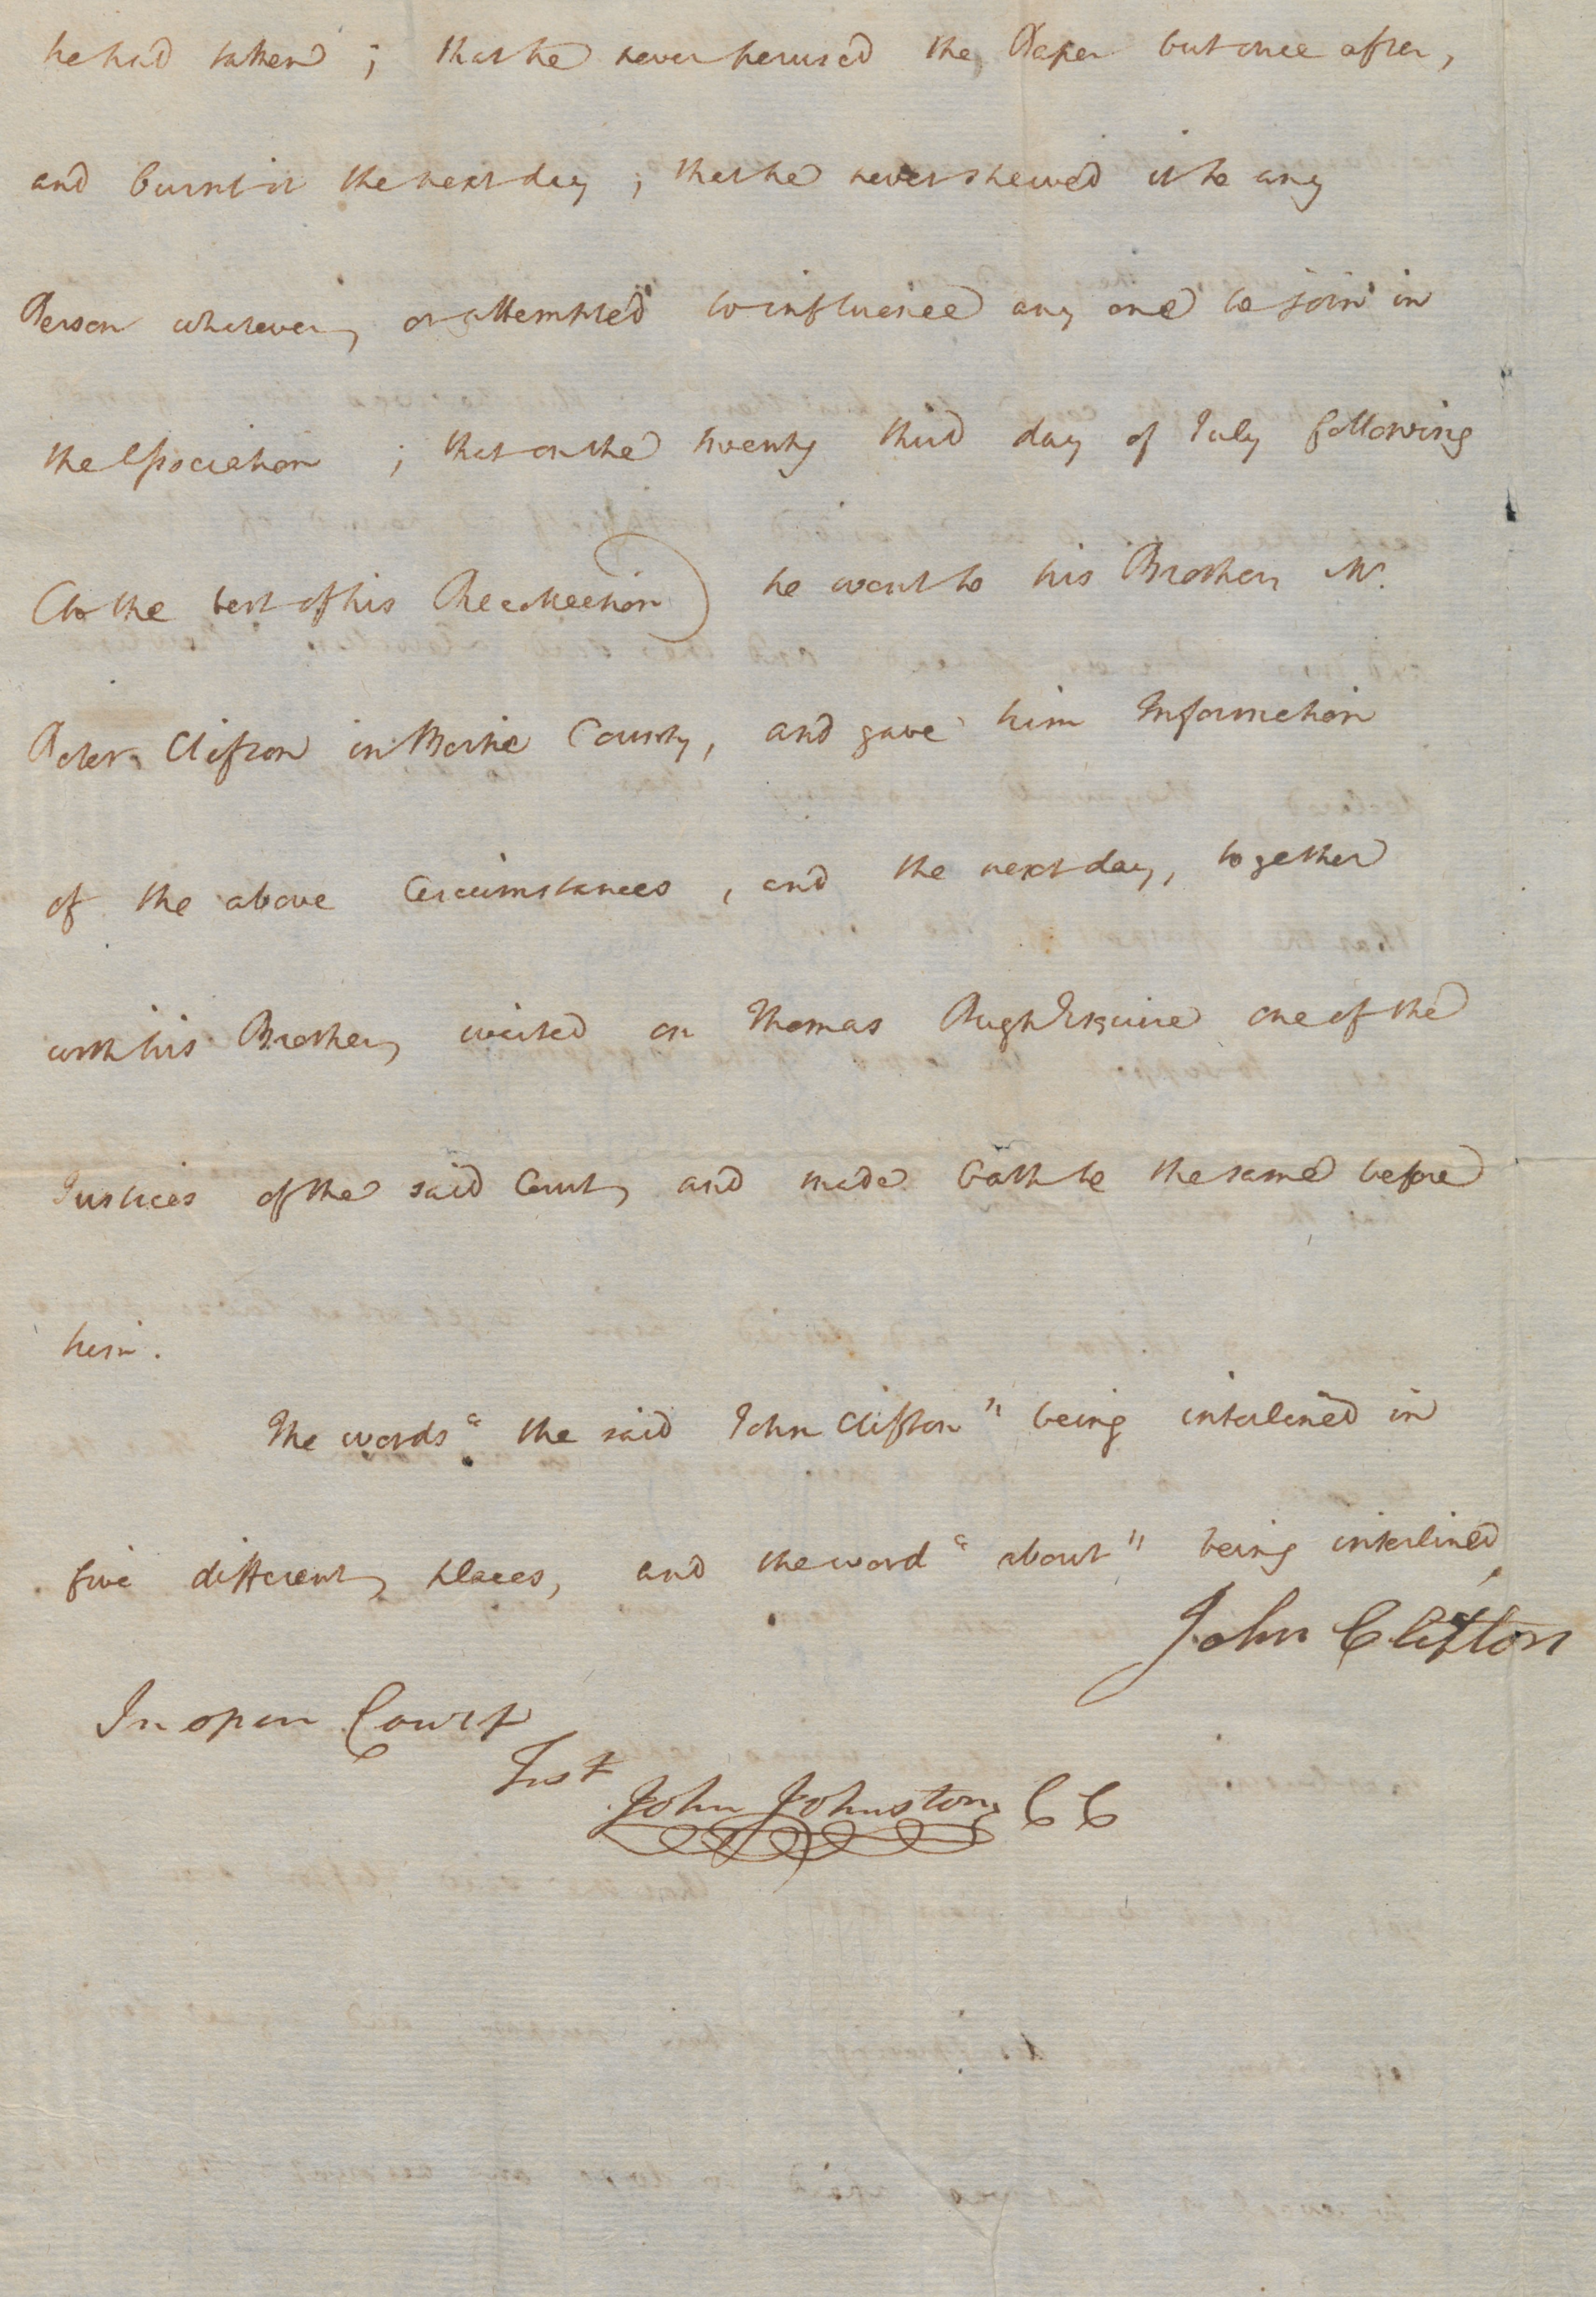 he had taken ; that he never perused the Paper but once after,
and burnt it the next day ; that he never shewed it to any
Person whatever, or attempted to influence any one to join in
the Association ; that on the twenty third day of July following
(to the best of his Recollection) he went to his Brother, Mr.
Peter Clifton in Bertie County, and gave him Information
of the above Circumstances, and the next day, together
with his Brother, waited on Thomas Pugh Esquire one of the
Justices of the said Court, and made Oath to the same before
him.
The words "the said John Clifton" being interlined in
five different places, and the word "about" being interlined
John Clifton
In open Court
Test
John Johnston CC